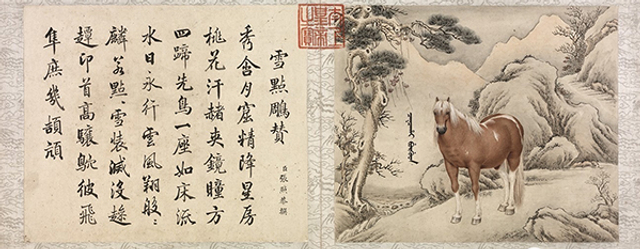 雪點鵰贊
臣張照恭撰
秀含月窟精降星房
桃花汗赭夾鏡瞳方
四蹄先鳥一座如床流
水日永行雲風翔般〻
麟若點〻雪裝滅沒
印首高驤馳彼飛
隼庶幾頡頏